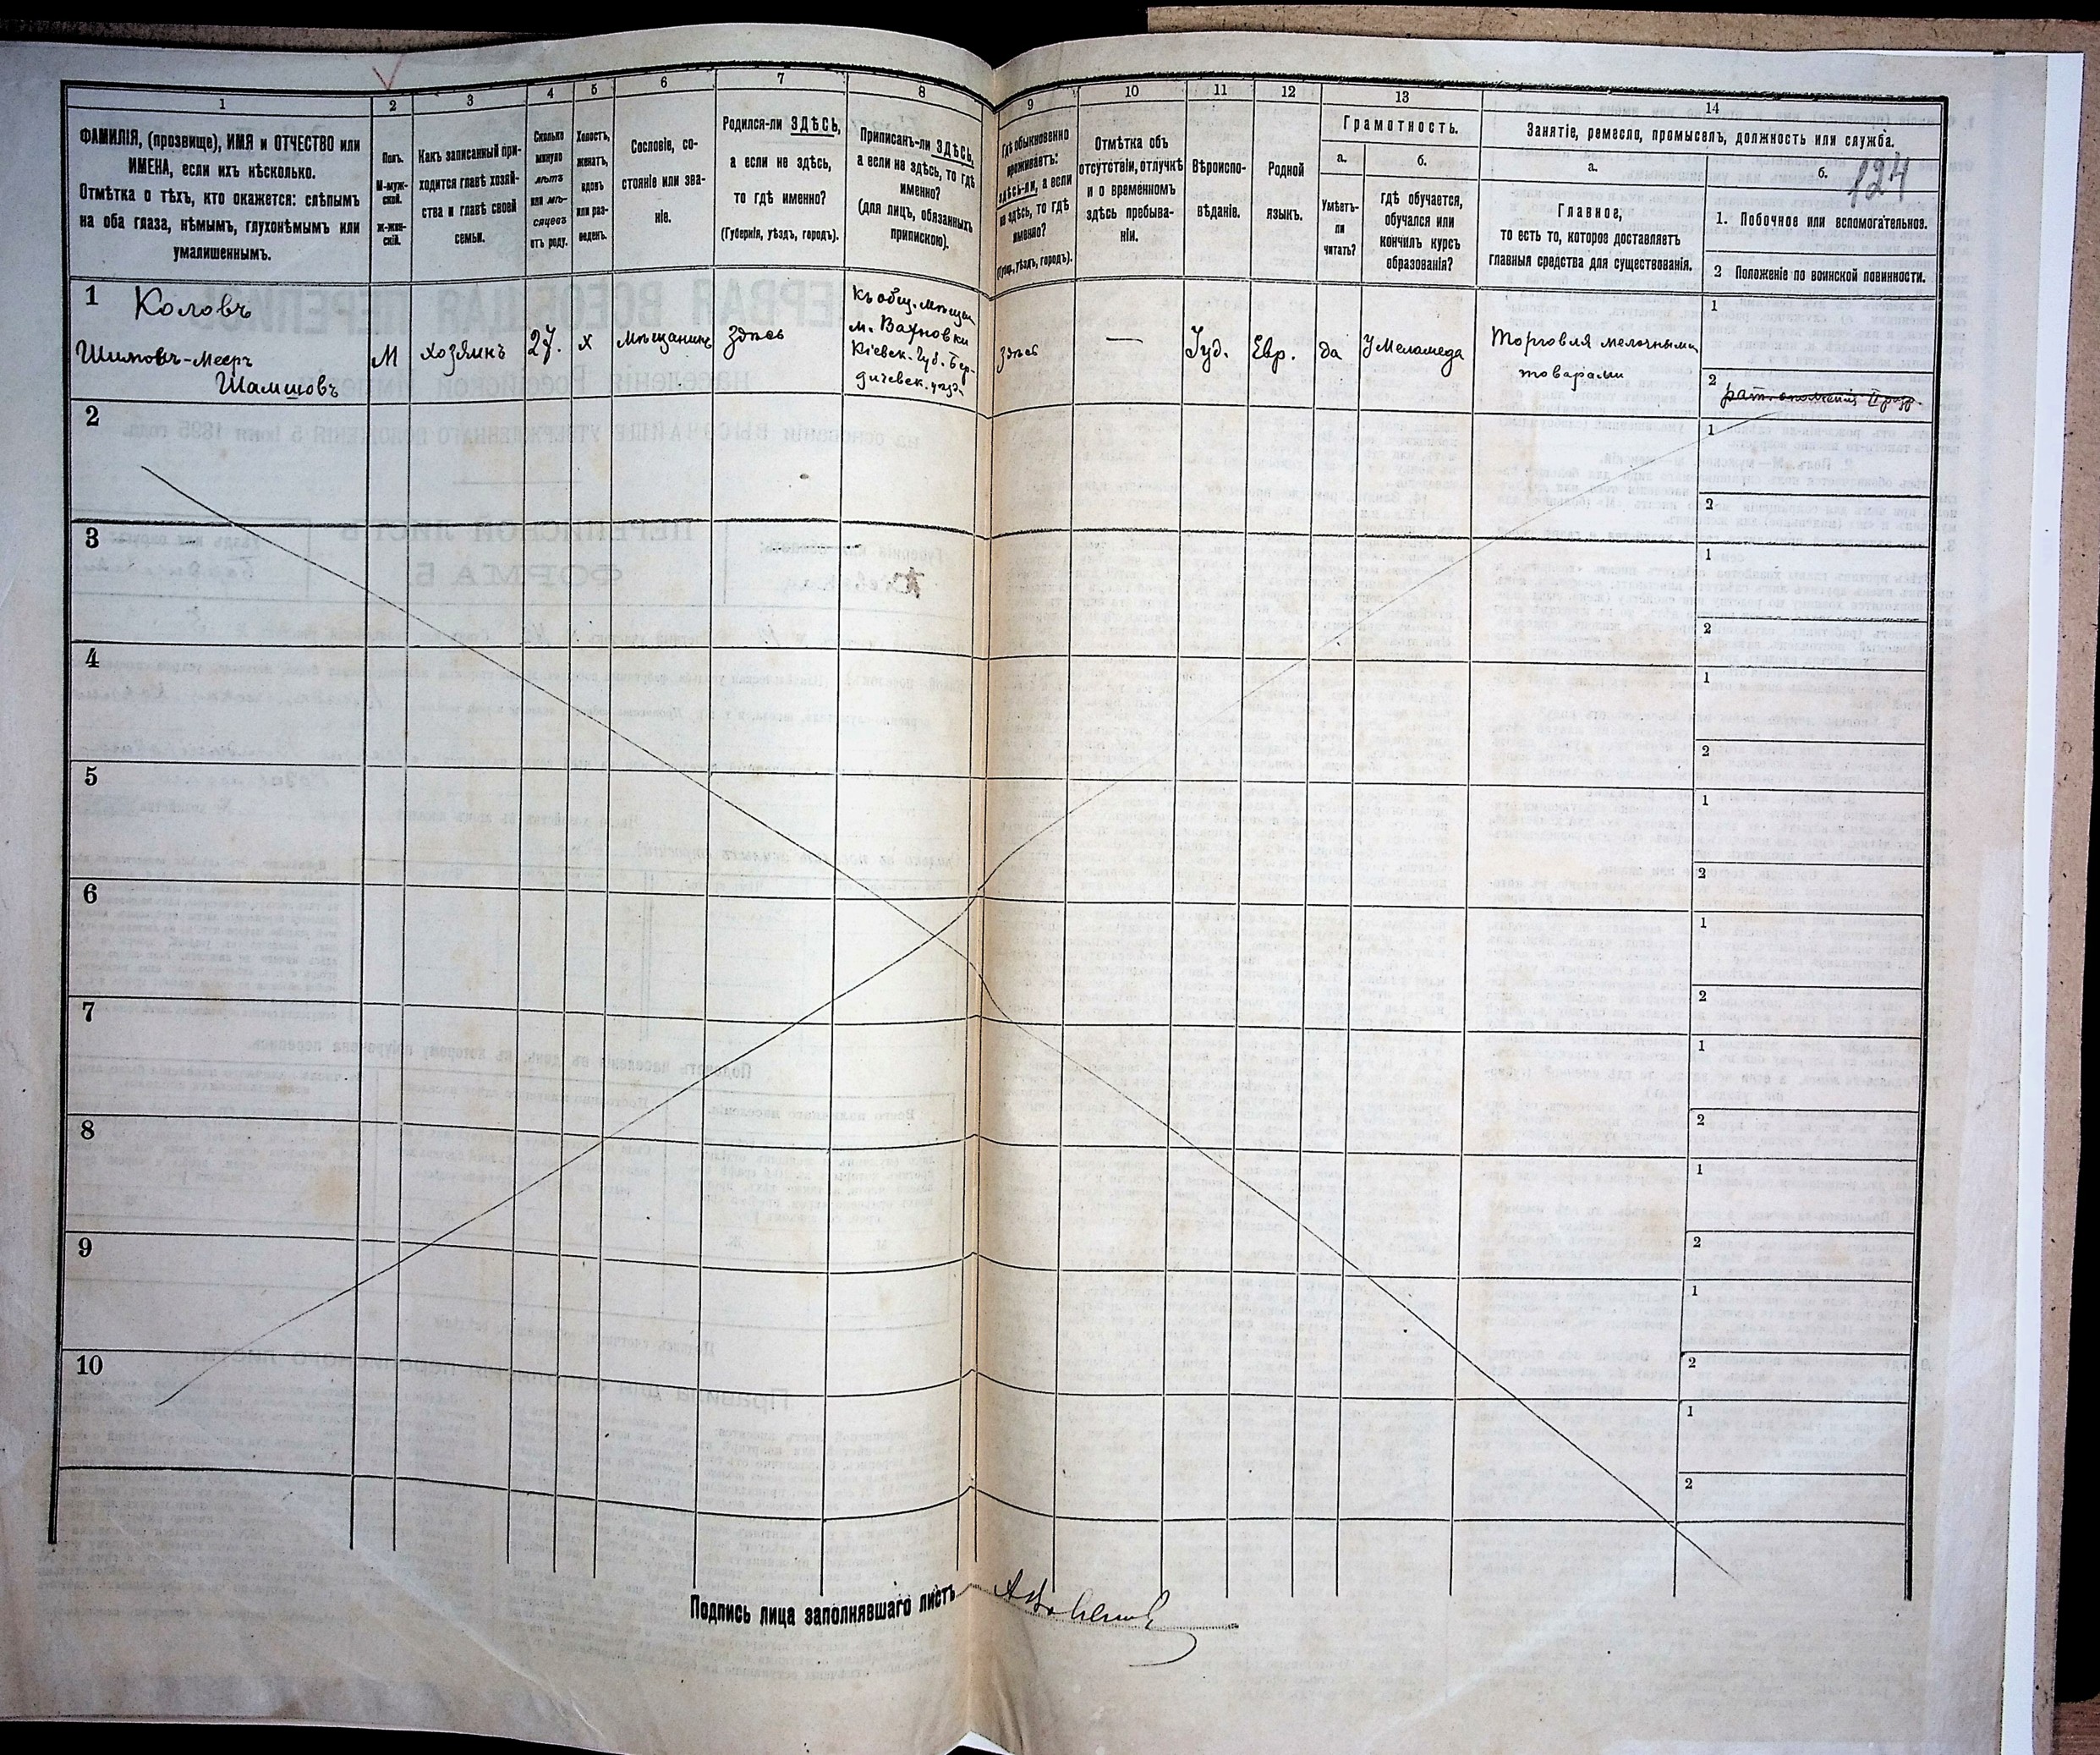 1
2
3
4
5
6
7
8
9
10
11
12
13
14
ФАМИЛІЯ, (прозвище), ИМЯ и ОТЧЕСТВО или
ИМЕНА, если ихъ нѣсколько.
Отмѣтка о тѣхъ, кто окажется: слѣпымъ
на оба глаза, нѣмымъ, глухонѣмымъ или
умалишеннымъ.
Полъ.
М-муж-
ской.
ж-жен-
скій.
Какъ записанный при-
ходится главѣ хозяй-
ства и главѣ своей
семьи.
Сколько
минуло
лѣтъ
или мѣ-
сяцевъ
отъ роду.
Холостъ,
женатъ,
вдовъ
или раз-
веденъ.
Сословіе, со-
стояніе или зва-
ніе.
Родился-ли ЗДѢСЬ,
а если не здѣсь,
то гдѣ именно?
(Губернія, уѣздъ, городъ).
Приписанъ-ли ЗДѢСЬ,
а если не здѣсь, то гдѣ
именно?
(для лицъ, обязанныхъ
припискою).
Гдѣ обыкновенно
проживаетъ:
здѣсь-ли, а если
не здѣсь, то гдѣ
именно?
(Губ., уѣздъ, городъ).
Отмѣтка объ
отсутствіи, отлучкѣ
и о временномъ
здѣсь пребыва-
ніи.
Вѣроиспо-
вѣданіе.
Родной
языкъ.
Грамотность.
а.
б.
Умѣетъ-
ли
читать?
гдѣ обучается,
обучался или
кончилъ курсъ
образованія?
Занятіе, ремесло, промыселъ, должность или служба.
а.
б.
124
Главное,
то есть то, которое доставляетъ
главныя средства для существованія.
1. Побочное или вспомогательное.
2 Положеніе по воинской повинности.
1
Коловъ
Шимовъ-Мееръ
Шамшовъ
М
хозяинъ
27.
х
Мѣщанинъ
здѣсь
къ общ. мѣщан
м. Вахновки
Кіевск. Губ. Бер-
дичевск. уѣз.
здѣсь
—
Іуд.
Евр.
да
У Меламеда
Торговля мелочными
товарами
1
2
2
1
2
3
1
2
4
1
2
5
1
2
6
1
2
7
1
2
8
1
2
9
1
2
10
1
2
Подпись лица заполнявшаго листъ